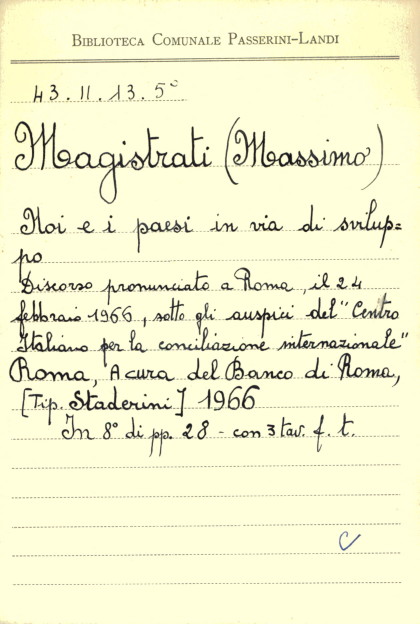 BIBLIOTECA COMUNALE PASSERINI-LANDI
43.II.13.5°
Magistrati (Massimo)
Noi e i paesi in via di svilup=
po
Discorso pronunciato a Roma, il 24
febbraio 1966, sotto gli auspici del "Centro
Italiano per la conciliazione internazionale"
Roma, A cura del Banco di Roma,
[Tip. Staderini] 1966
In 8° di pp. 28 - con 3 tav. f. t.
C